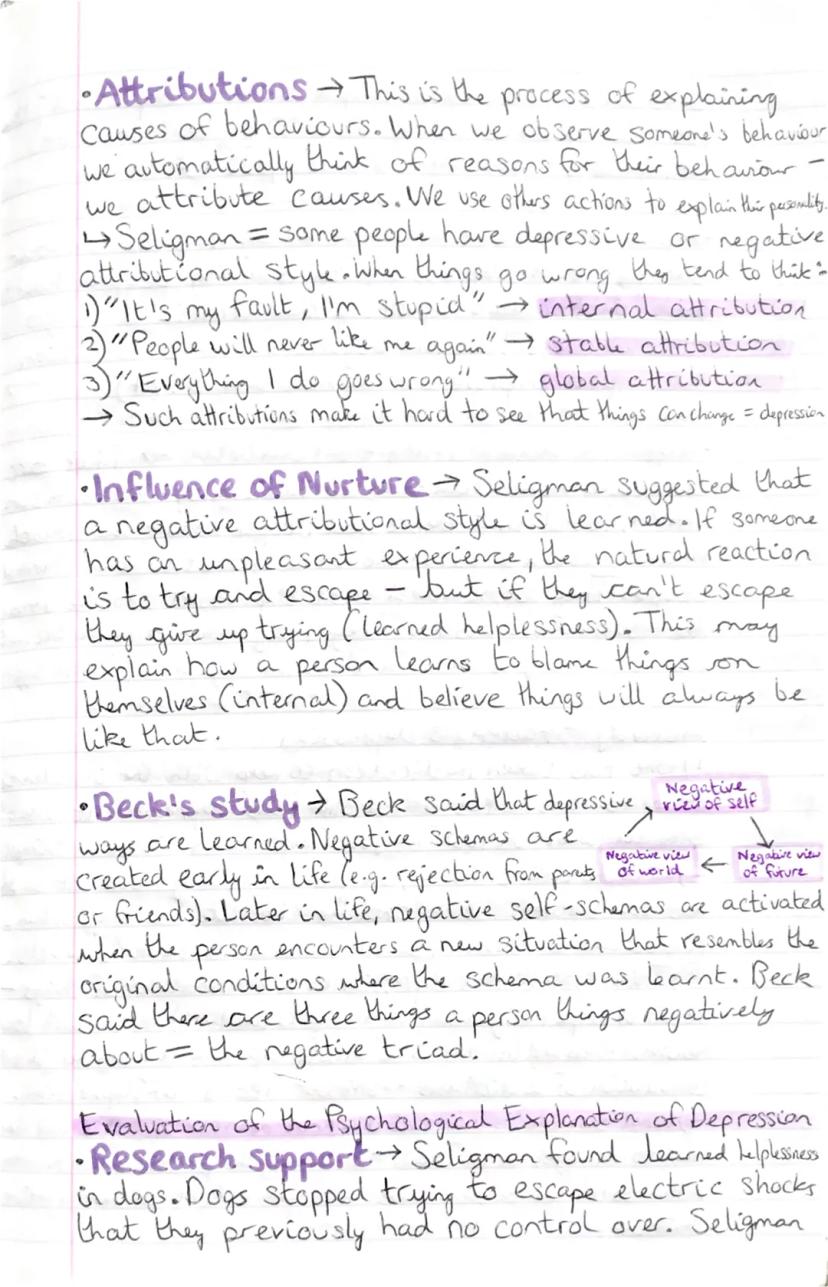 • Attributions → This is the process of explaining
causes of behaviours. When we observe someone's behaviour
we automatically think of reasons for their behaviour –
we attribute causes. We use others actions to explain their personality.
↳ Seligman = some people have depressive or negative
attributional style. When things go wrong they tend to think:-
1) "It's my fault, I'm stupid" → internal attribution
2) "People will never like me again" → stable attribution
3) "Everything I do goes wrong" → global attribution
→ Such attributions make it hard to see that things can change = depression
• Influence of Nurture → Seligman suggested that
a negative attributional style is learned. If someone
has an unpleasant experience, the natural reaction
is to try and escape – but if they can't escape
they give up trying (learned helplessness). This may
explain how a person learns to blame things on
themselves (internal) and believe things will always be
like that.
• Beck's study → Beck said that depressive
ways are learned. Negative schemas are
created early in life (e.g. rejection from parents
or friends). Later in life, negative self-schemas are activated
when the person encounters a new situation that resembles the
original conditions where the schema was learnt. Beck
said there are three things a person things negatively
about = the negative triad.
Negative
view of self
Negative view
of world
←
Negative view
of future
Evaluation of the Psychological Explanation of Depression
• Research support → Seligman found learned helplessness
in dogs. Dogs stopped trying to escape electric shocks
that they previously had no control over. Seligman